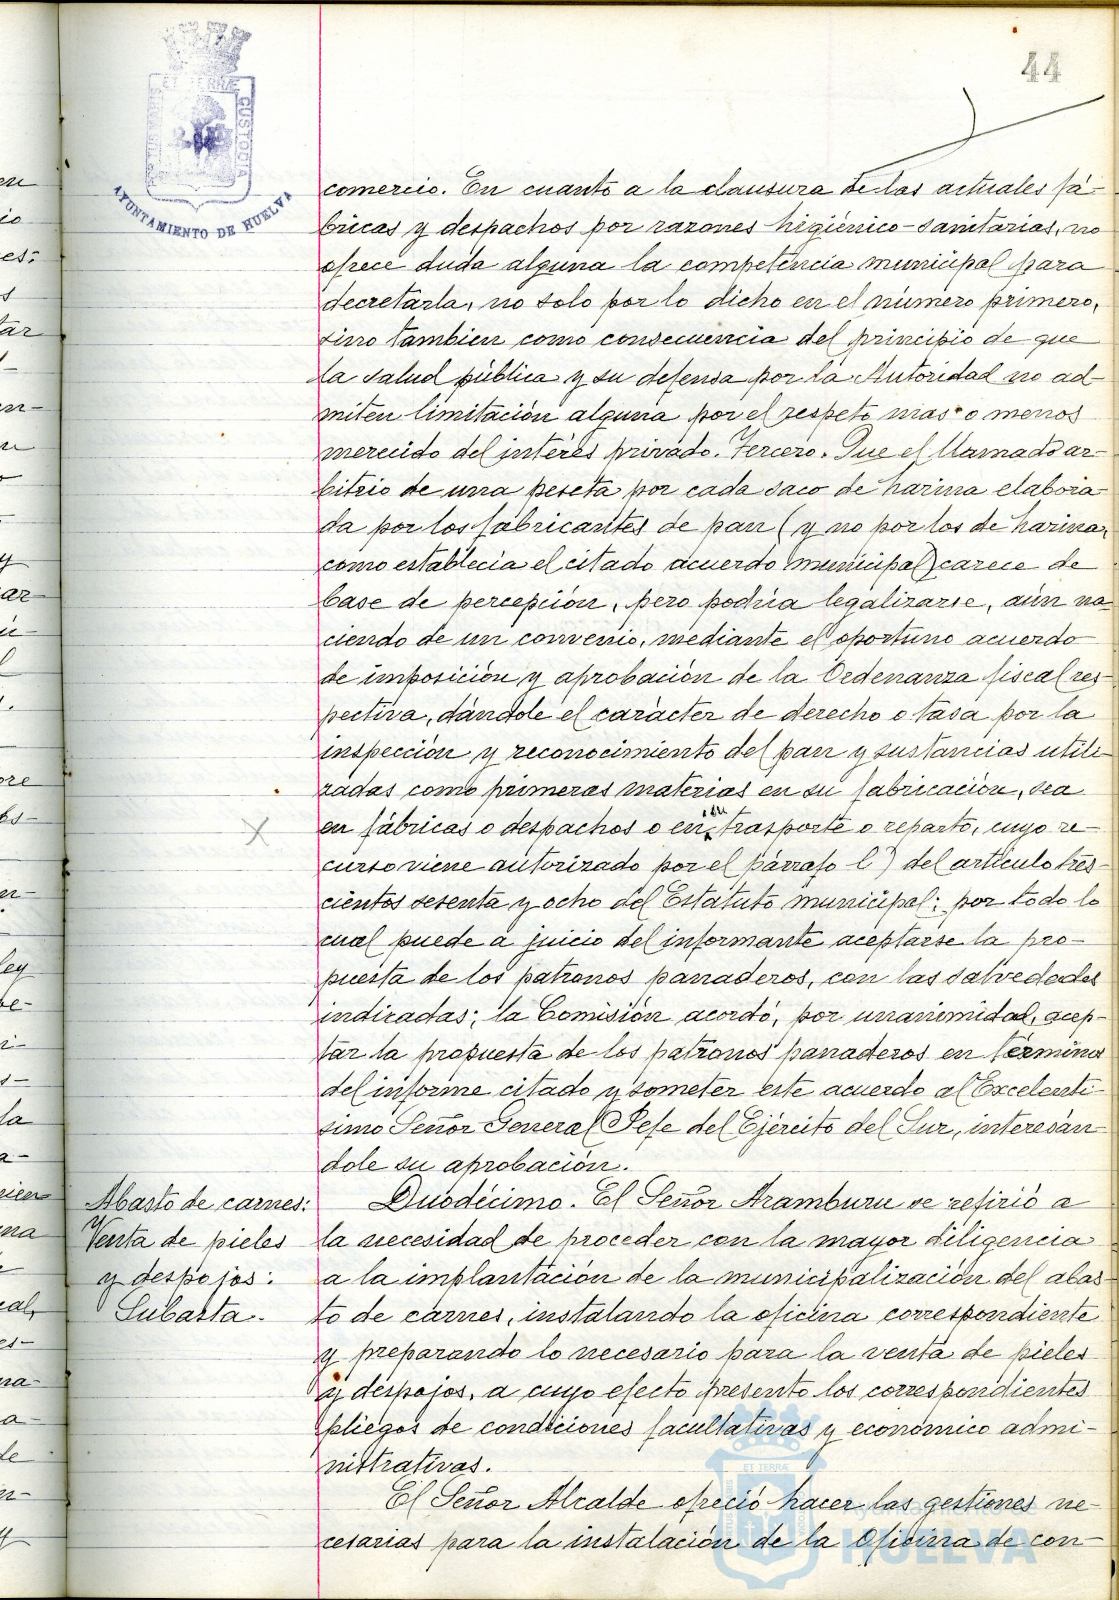 44
AYUNTAMIENTO DE HUELVA
comercio. En cuanto a la clausura de las actuales fá-
bricas y despachos por razones higiénico-sanitarias, no
ofrece duda alguna la competencia municipal para
decretarla, no solo por lo dicho en el número primero,
sino tambien como consecuencia del principio de que
la salud pública y su defensa por la Autoridad no ad-
miten limitación alguna por el respeto mas o menos
merecido del interés privado. Tercero. Que el llamado ar-
bitrio de una peseta por cada saco de harina elabora-
da por los fabricantes de pan (y no por los de harina,
como establecia el citado acuerdo municipal) carece de
base de percepción, pero podria legalizarse, aún na-
ciendo de un convenio, mediante el oportuno acuerdo
de imposición y aprobación de la Ordenanza fiscal res-
pectiva, dándole el carácter de derecho o tasa por la
inspección y reconocimiento del pan y sustancias utili-
zadas como primeras materias en su fabricación, sea
en fábricas o despachos o en su trasporte o reparto, cuyo re
curso viene autorizado por el párrafo l) del articulo tres-
cientos sesenta y ocho del Estatuto municipal; por todo lo
cual puede a juicio del informante aceptarse la pro-
puesta de los patronos panaderos, con las salvedades
indicadas; la Comisión acordó, por unanimidad, acep-
tar la propuesta de los patronos panaderos en términos
del informe citado y someter este acuerdo al Excelentí-
simo Señor General Jefe del Ejército del Sur, interesán-
dole su aprobación.
Abasto de carnes:
Venta de pieles
y despojos:
Subasta.
Duodécimo. El Señor Aramburu se refirió a
la necesidad de proceder con la mayor diligencia
a la implantación de la municipalización del abas-
to de carnes, instalando la oficina correspondiente
y preparando lo necesario para la venta de pieles
y despojos, a cuyo efecto presento los correspondientes
pliegos de condiciones facultativas y económico admi-
nistrativas.
El Señor Alcalde ofreció hacer las gestiones ne-
cesarias para la instalación de la Oficina de con-
Ayuntamiento de
HUELVA